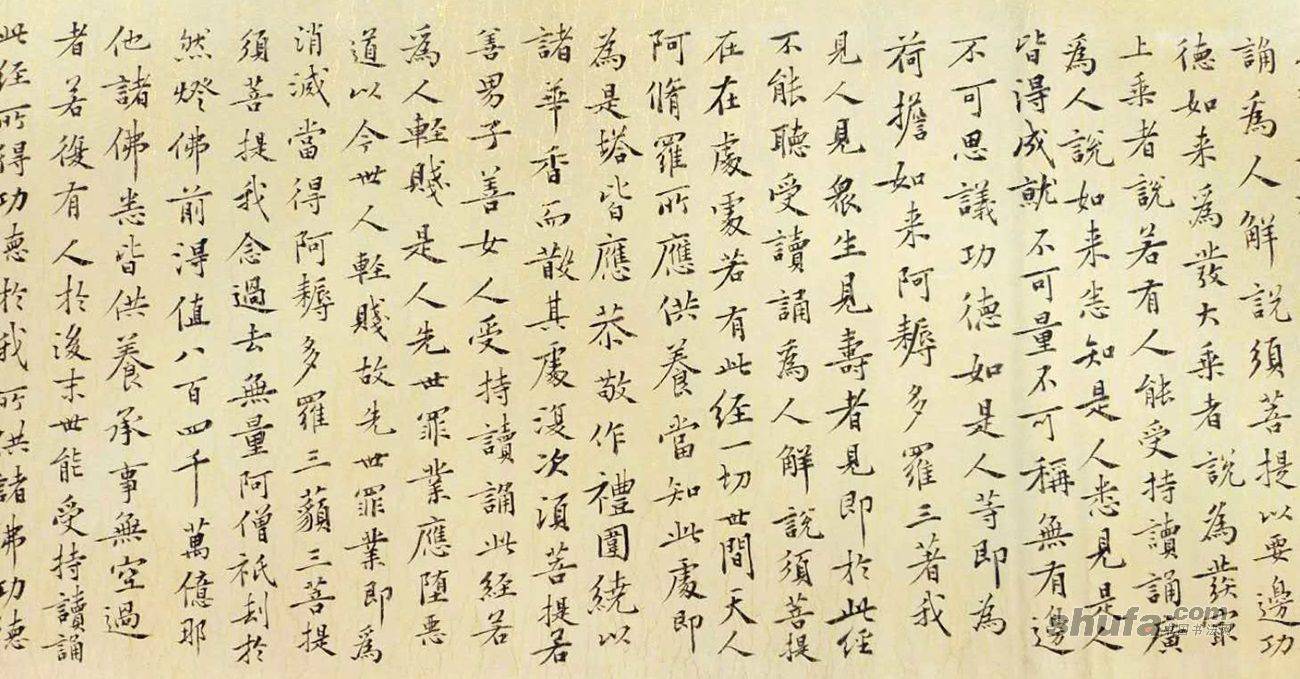 誦為人解說須菩提以要邊功
德如来為發大乗者說為發㝡
上乗者說若有人能受持讀誦廣
為人說如来悉知是人悉見是人
皆得成就不可量不可稱無有邊
不可思議功德如是人等即為
荷擔如来阿耨多羅三著我
見人見衆生見壽者見即於此經
不能聽受讀誦為人解說須菩提
在在處處若有此經一切世間天人
阿脩羅所應供養當知此處即
為是塔皆應恭敬作禮圍繞以
諸華香而散其處復次須菩提若
善男子善女人受持讀誦此經若
為人輕賤是人先世罪業應墮惡
道以今世人輕賤故先世罪業即為
消滅當得阿耨多羅三藐三菩提
須菩提我念過去無量阿僧祇刦於
然燈佛前得值八百四千萬億那
他諸佛悉皆供養承事無空過
者若復有人於後末世能受持讀誦
此經所得功德於我所供諸佛功德
shufa.com
中国书法网